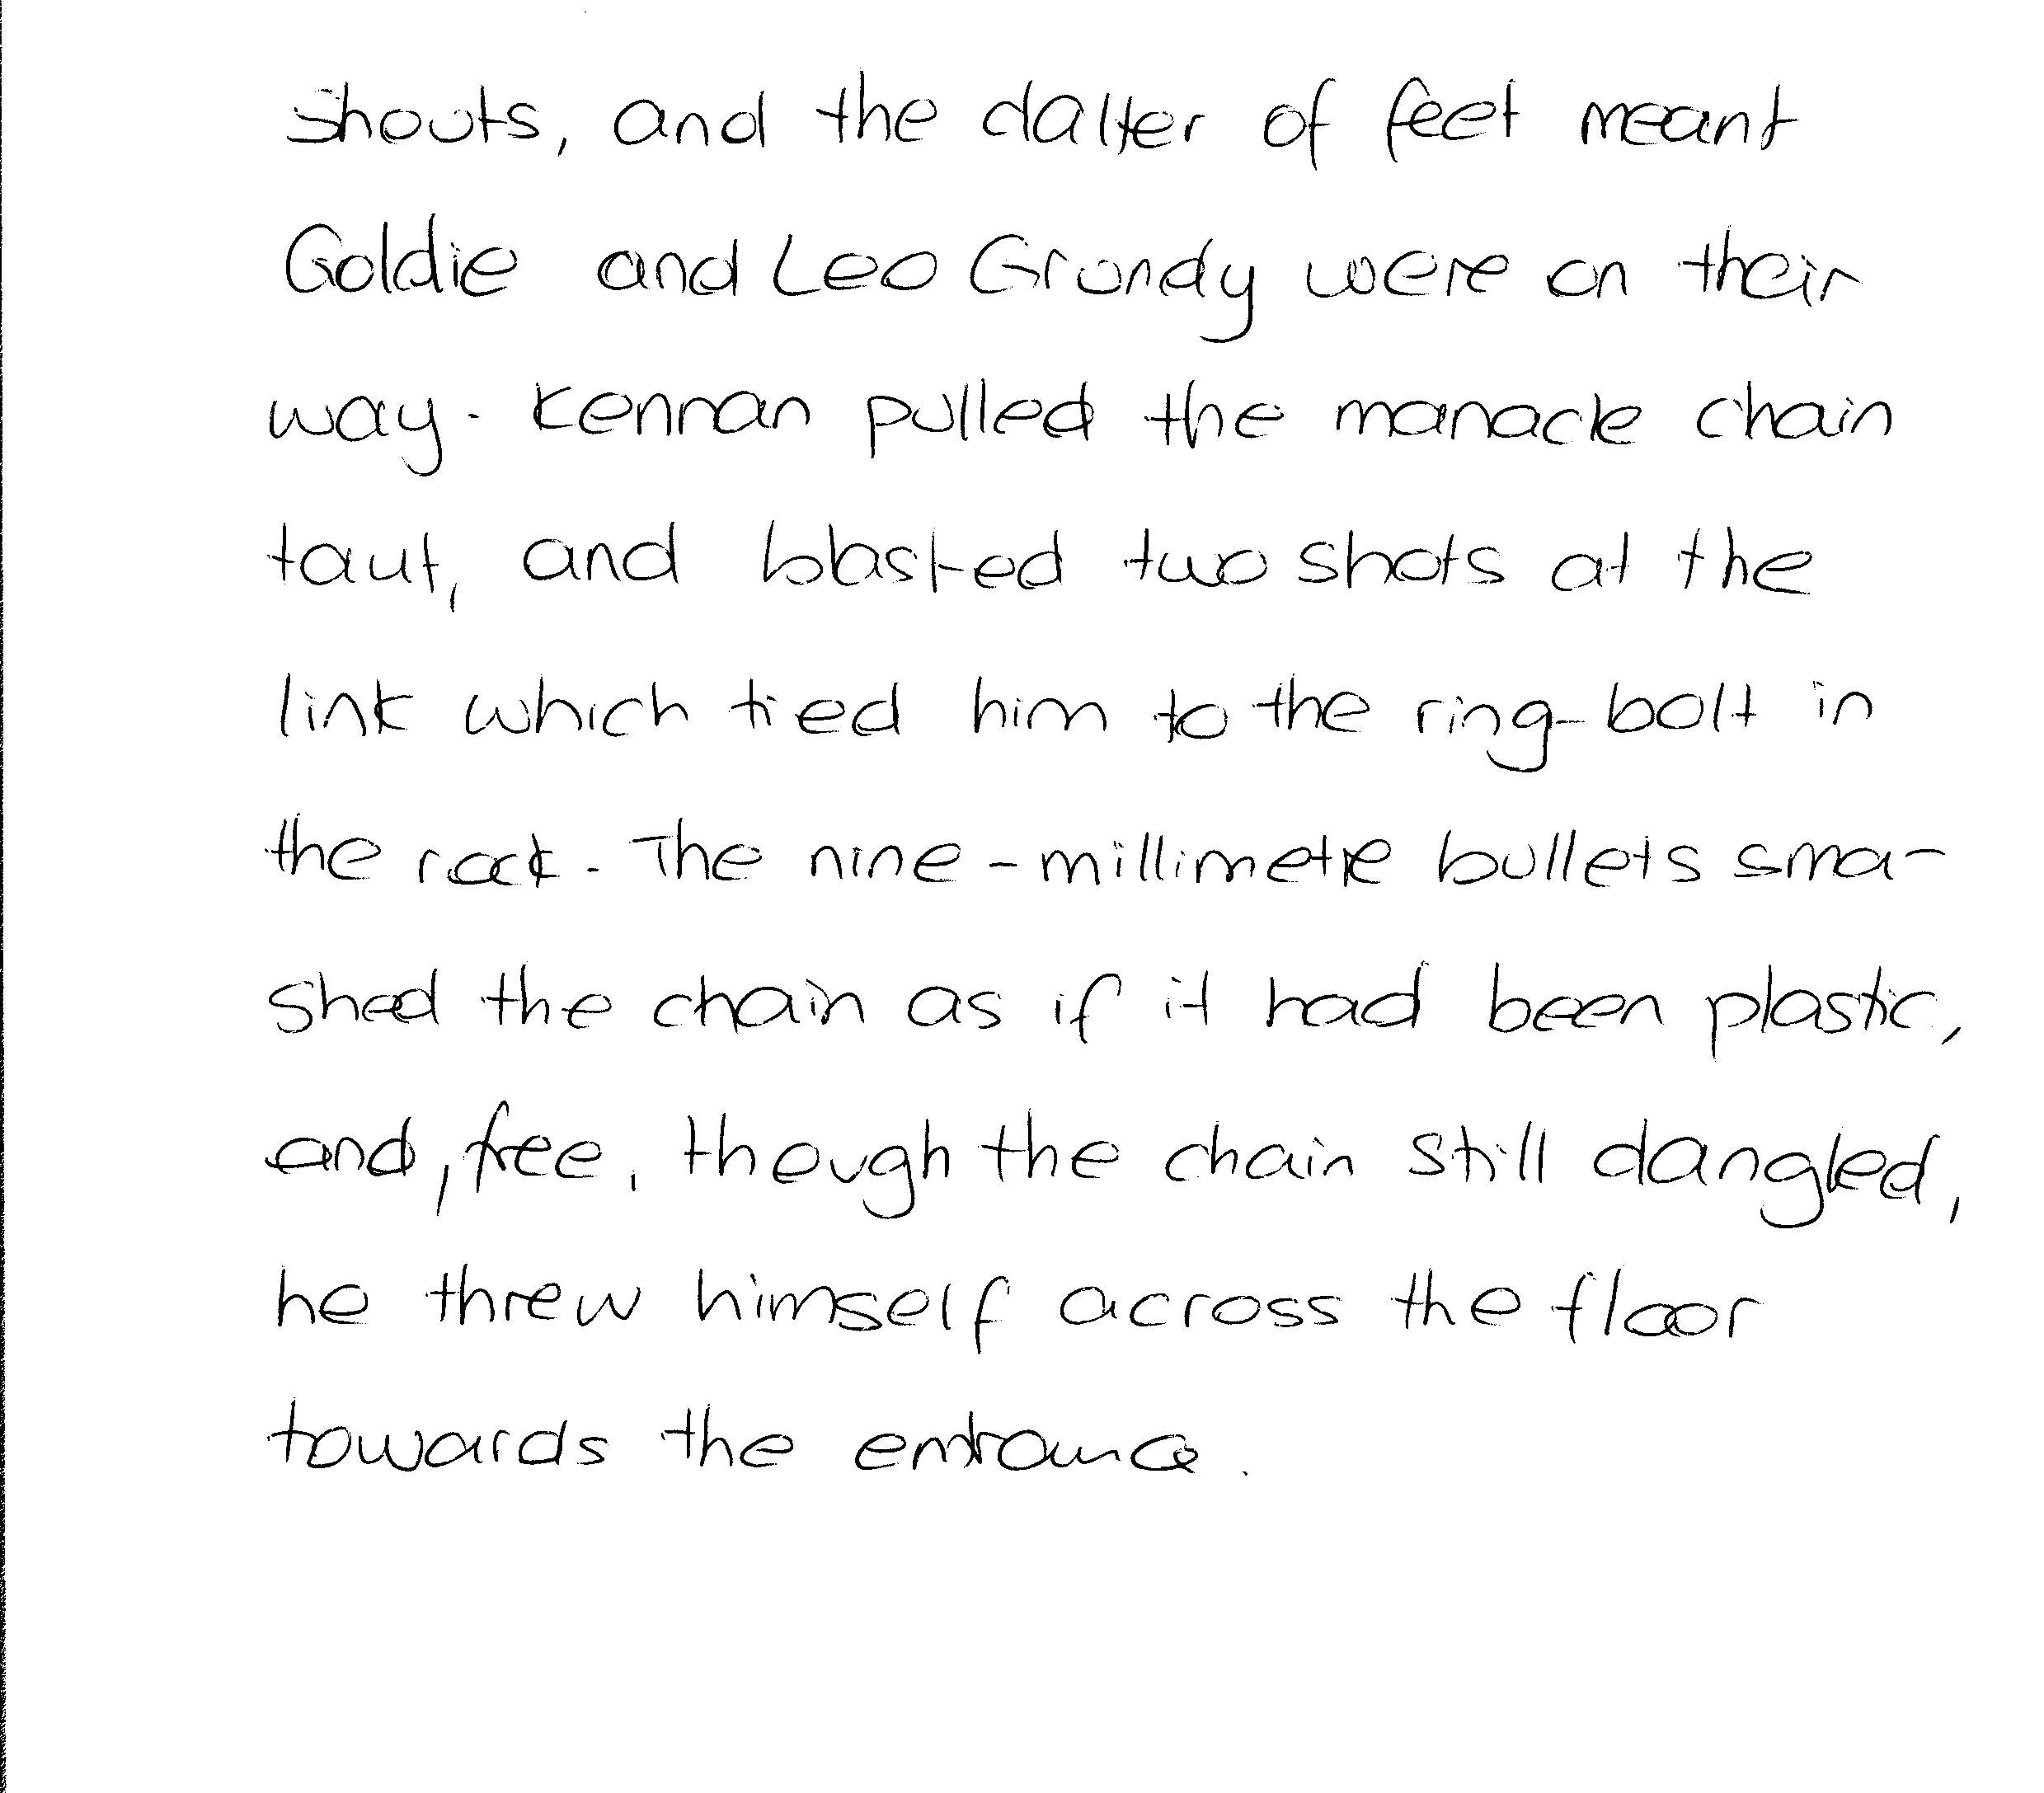 shouts, and the clatter of feet meant
Goldie and Leo Grundy were on their
way. Kennan pulled the manacle chain
taut, and blasted two shots at the
link which tied him to the ring-bolt in
the rock. The nine-millimetre bullets sma-
shed the chain as if it had been plastic,
and, free, though the chain still dangled,
he threw himself across the floor
towards the entrance.